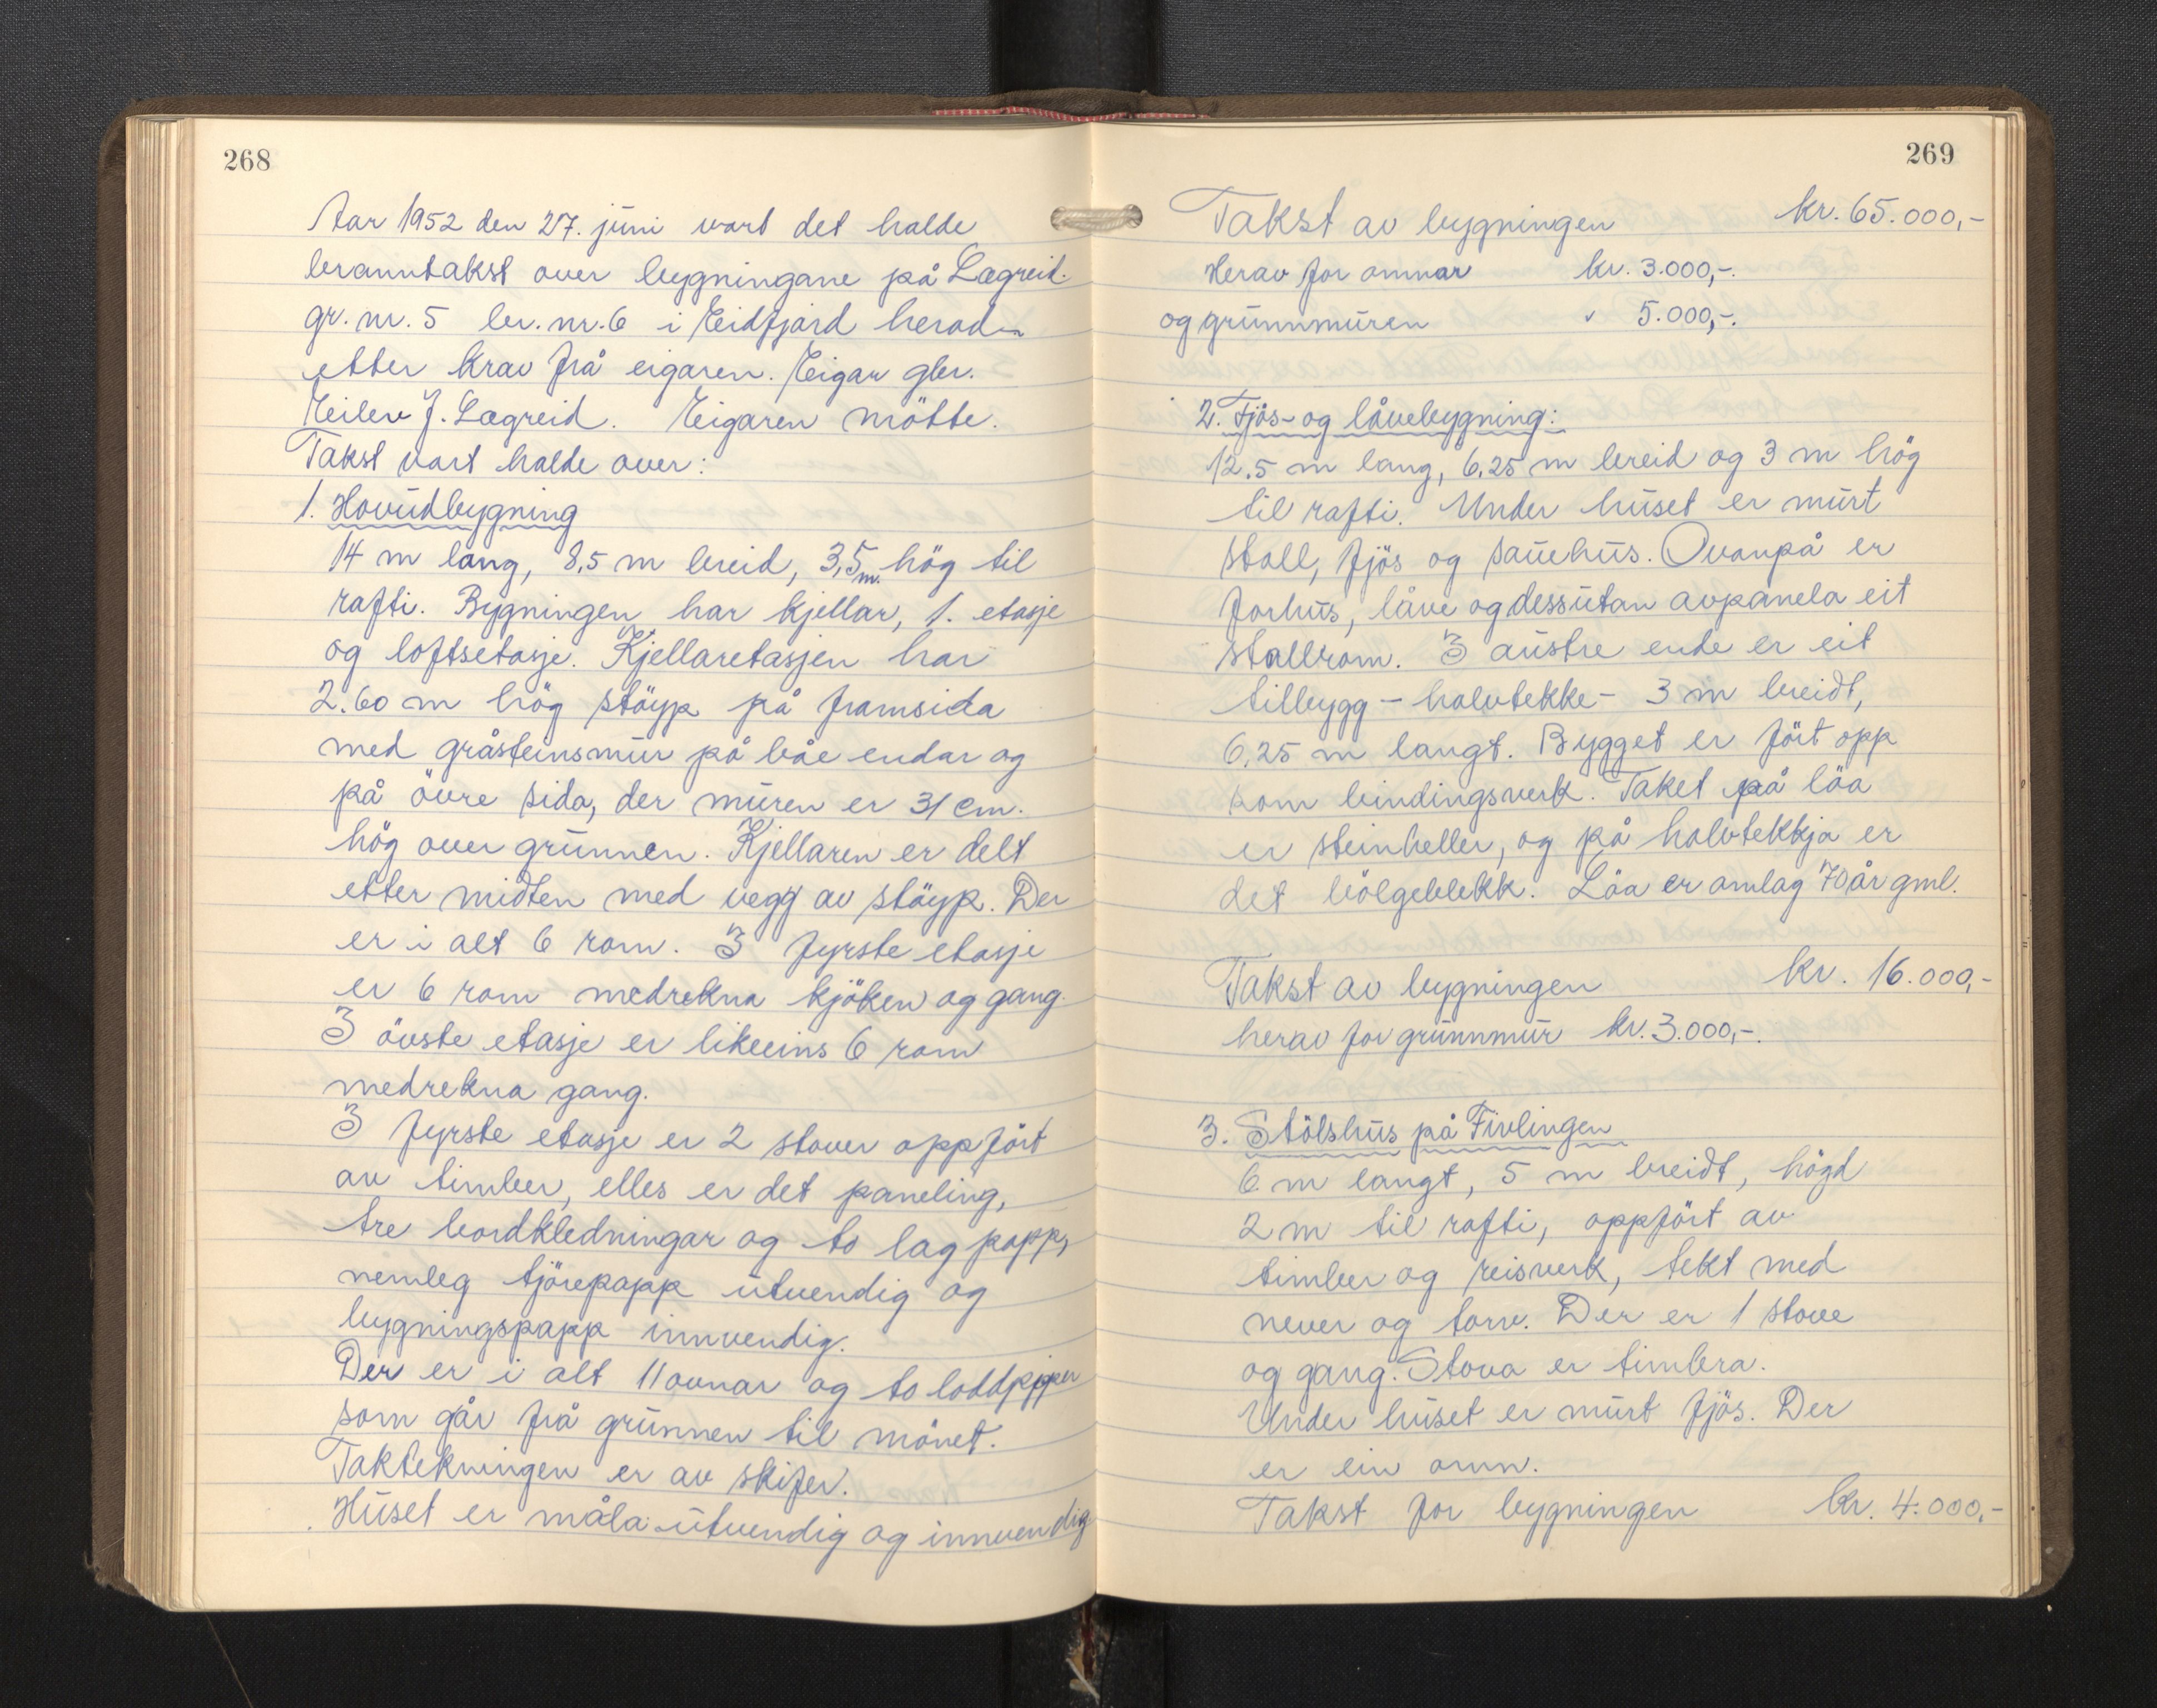 268
Aar 1952 den 27. juni vart det halde
branntakst over bygningane på Lægreid.
gr. nr. 5 br. nr. 6 i Eidfjord herad
etter krav frå eigaren. Eigar gbr.
Eilev J. Lægreid. Eigaren mötte.
Takst vart halde over:
1. Hovudbygning
14 m lang, 8,5 m breid, 3,5 m. hög til
rafti. Bygningen har kjellar, 1. etasje
og loftsetasje. Kjellaretasjen har
2.60 m hög stöyp på framsida
med gråsteinsmur på båe endar og
på övre sida, der muren er 31 cm.
hög over grunnen. Kjellaren er delt
etter midten med vegg av stöyp. Der
er i alt 6 rom. I fyrste etasje
er 6 rom medrekna kjöken og gang.
I övste etasje er likeeins 6 rom
medrekna gang.
I fyrste etasje er 2 stover oppfört
av timber, elles er det paneling,
tre bordkledningar og to lag papp,
nemleg tjörepapp utvendig og
bygningspapp innvendig.
Der er i alt 11 ovnar og to loddpiper
som går frå grunnen til mönet.
Taktekningen er av skifer.
Huset er måla utvendig og innvendig
269
Takst av bygningen kr. 65.000,-
Herav for omnar kr. 3.000,-.
og grunnmuren " 5.000,-.
2. Fjös- og låvebygning:
12.5 m lang, 6,25 m breid og 3 m hög
til rafti. Under huset er murt
stall, fjös og sauehus. Ovanpå er
forhus, låve og dessutan avpanela eit
stallrom. I austre ende er eit
tilbygg - halvtekke - 3 m breidt,
6,25 m langt. Bygget er fört opp
som bindingsverk. Taket på löa
er steinheller, og på halvtekkja er
det bölgeblekk. Löa er omlag 70 år gml.
Takst av bygningen kr. 16.000,-
herav for grunnmur kr. 3.000,-.
3. Stölshus på Fivlingen
6 m langt, 5 m breidt, högd
2 m til rafti, oppfört av
timber og reisverk, tekt med
never og torv. Der er 1 stove
og gang. Stova er timbra.
Under huset er murt fjös. Der
er ein omn.
Takst for bygningen kr. 4.000,-